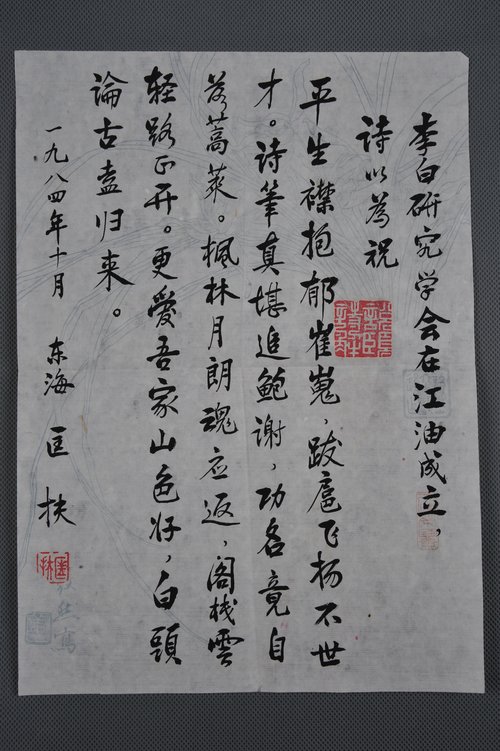 李白研究学会在江油成立，
诗以为祝
平生襟抱郁崔嵬，跋扈飞扬不世
才。诗筆真堪追鲍谢，功名竟自
落蒿莱。楓林月朗魂应返，阁栈雲
轻路正开。更愛吾家山色好，白頭
論古盍归来。
一九八四年十月 东海 匡扶